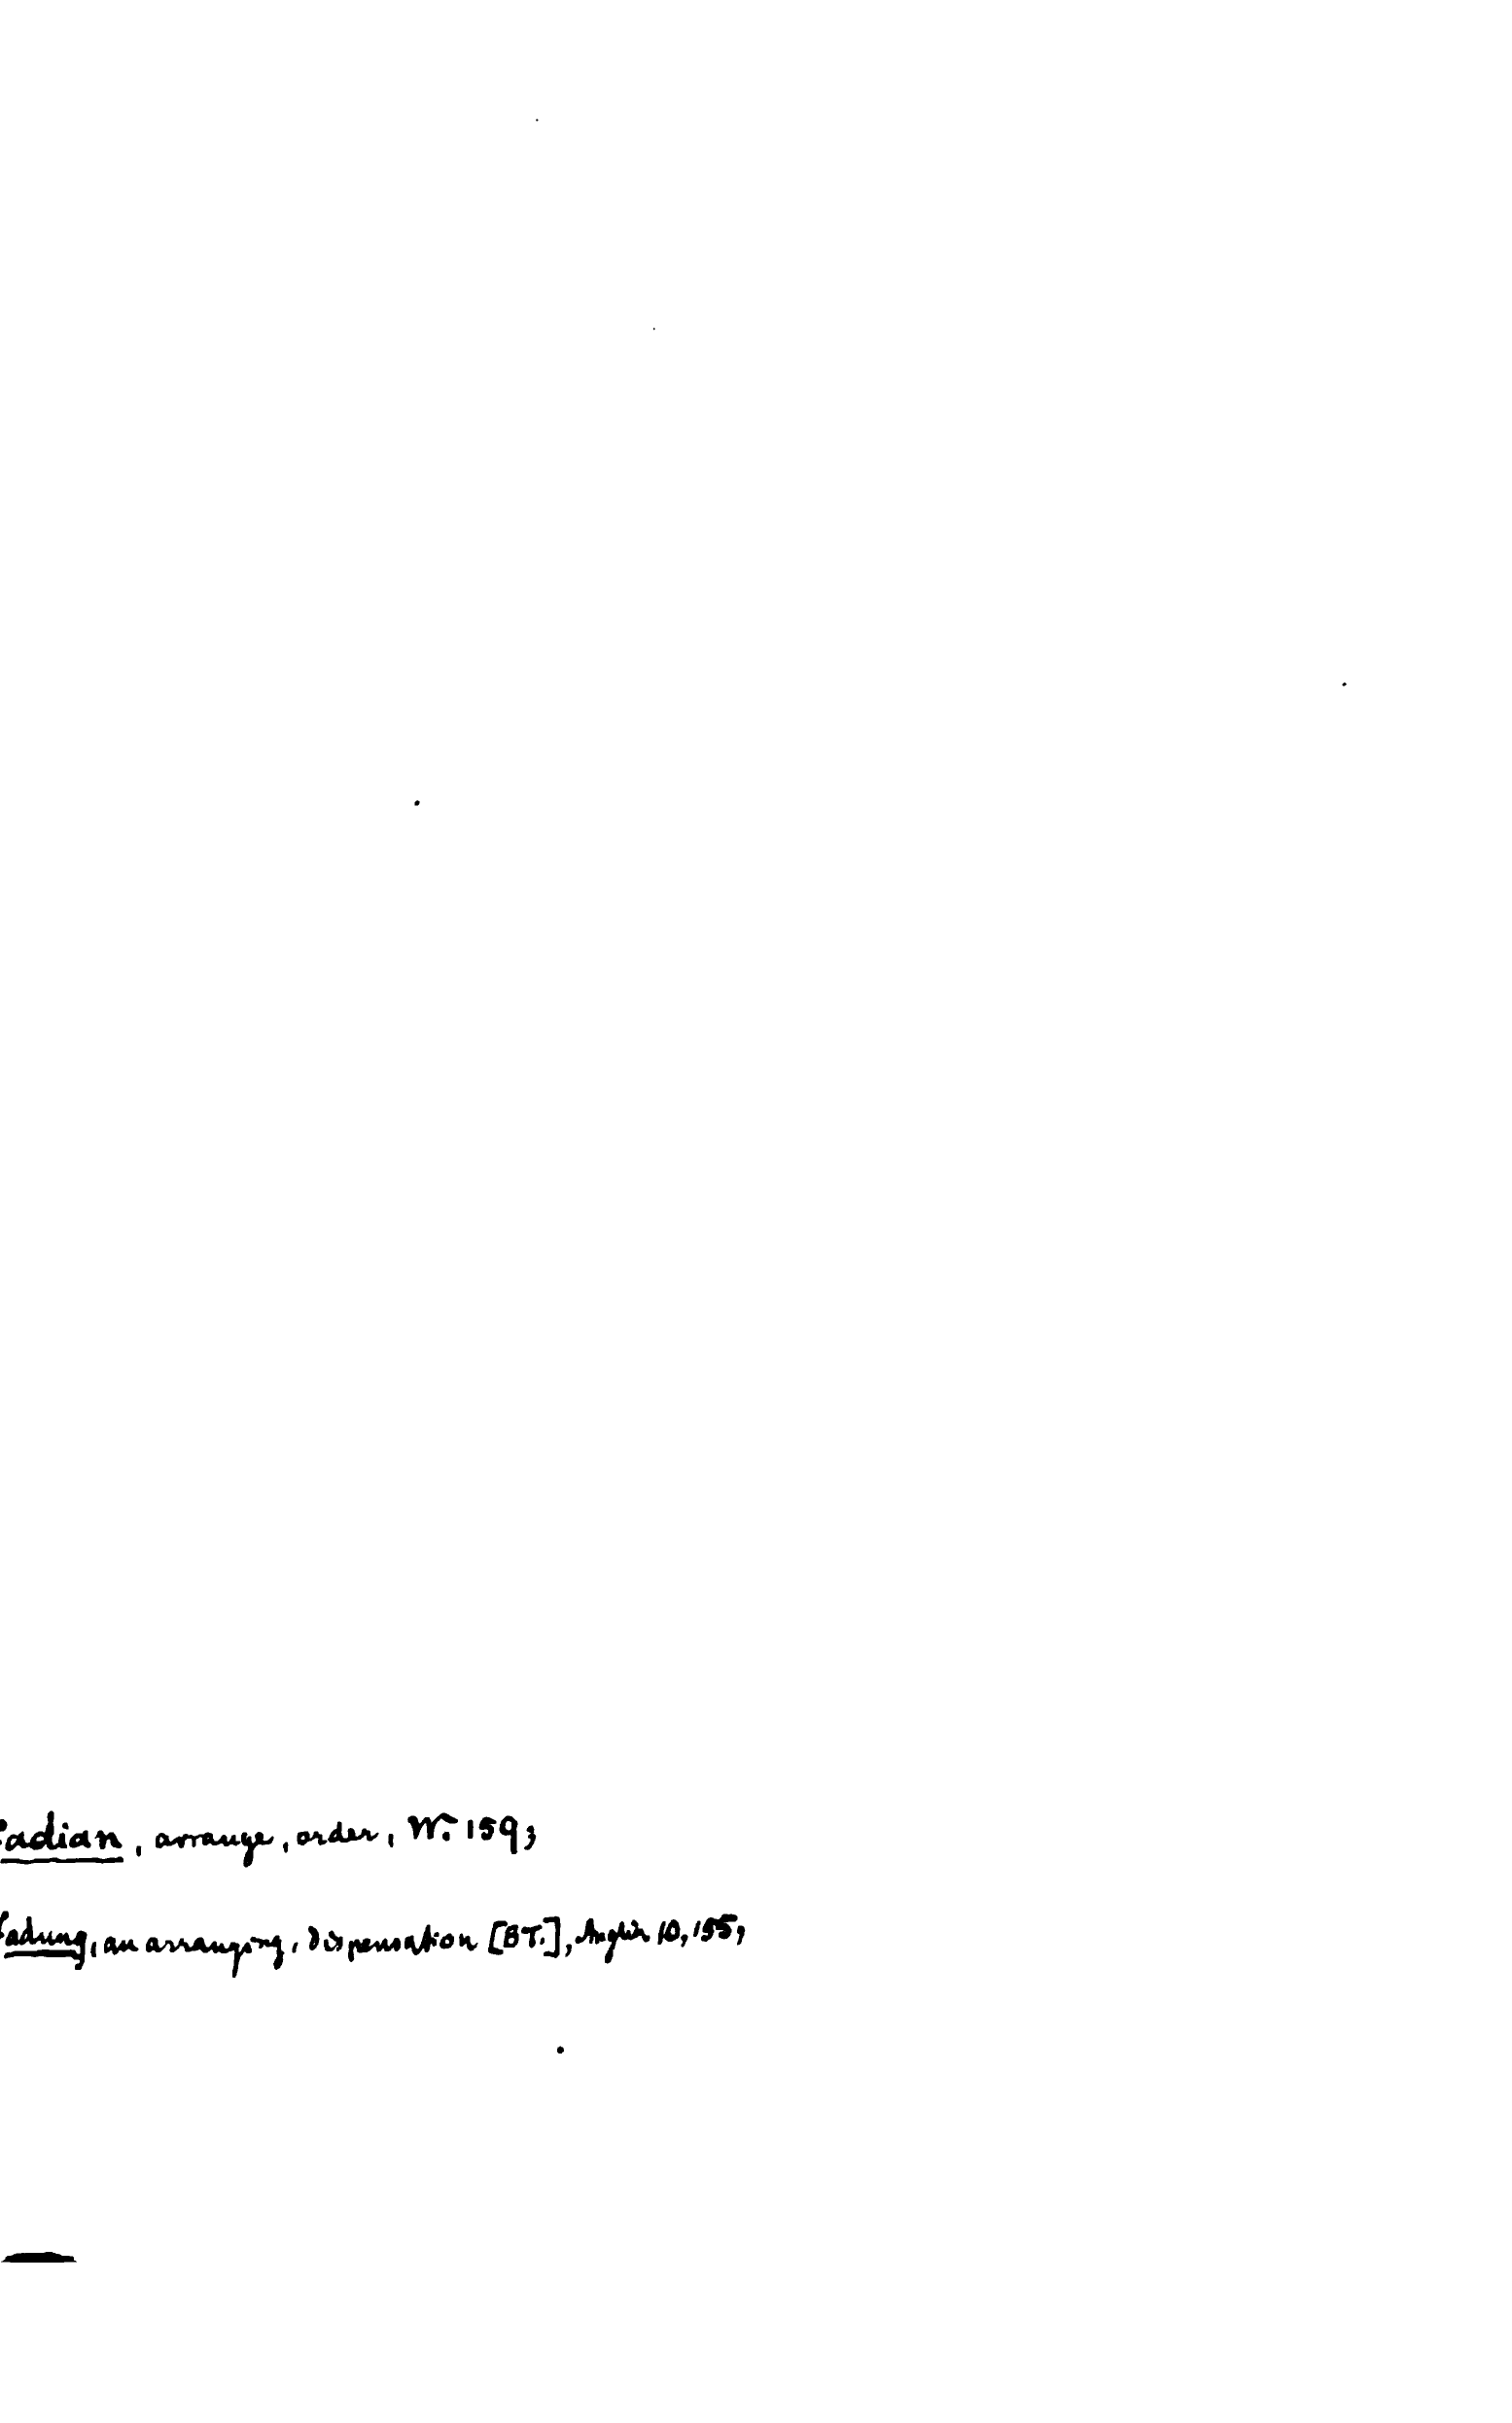 fadian, arrange, order, W. 159;
fadung, an arranging, dispensation [BT.], Anglia 10, 155;